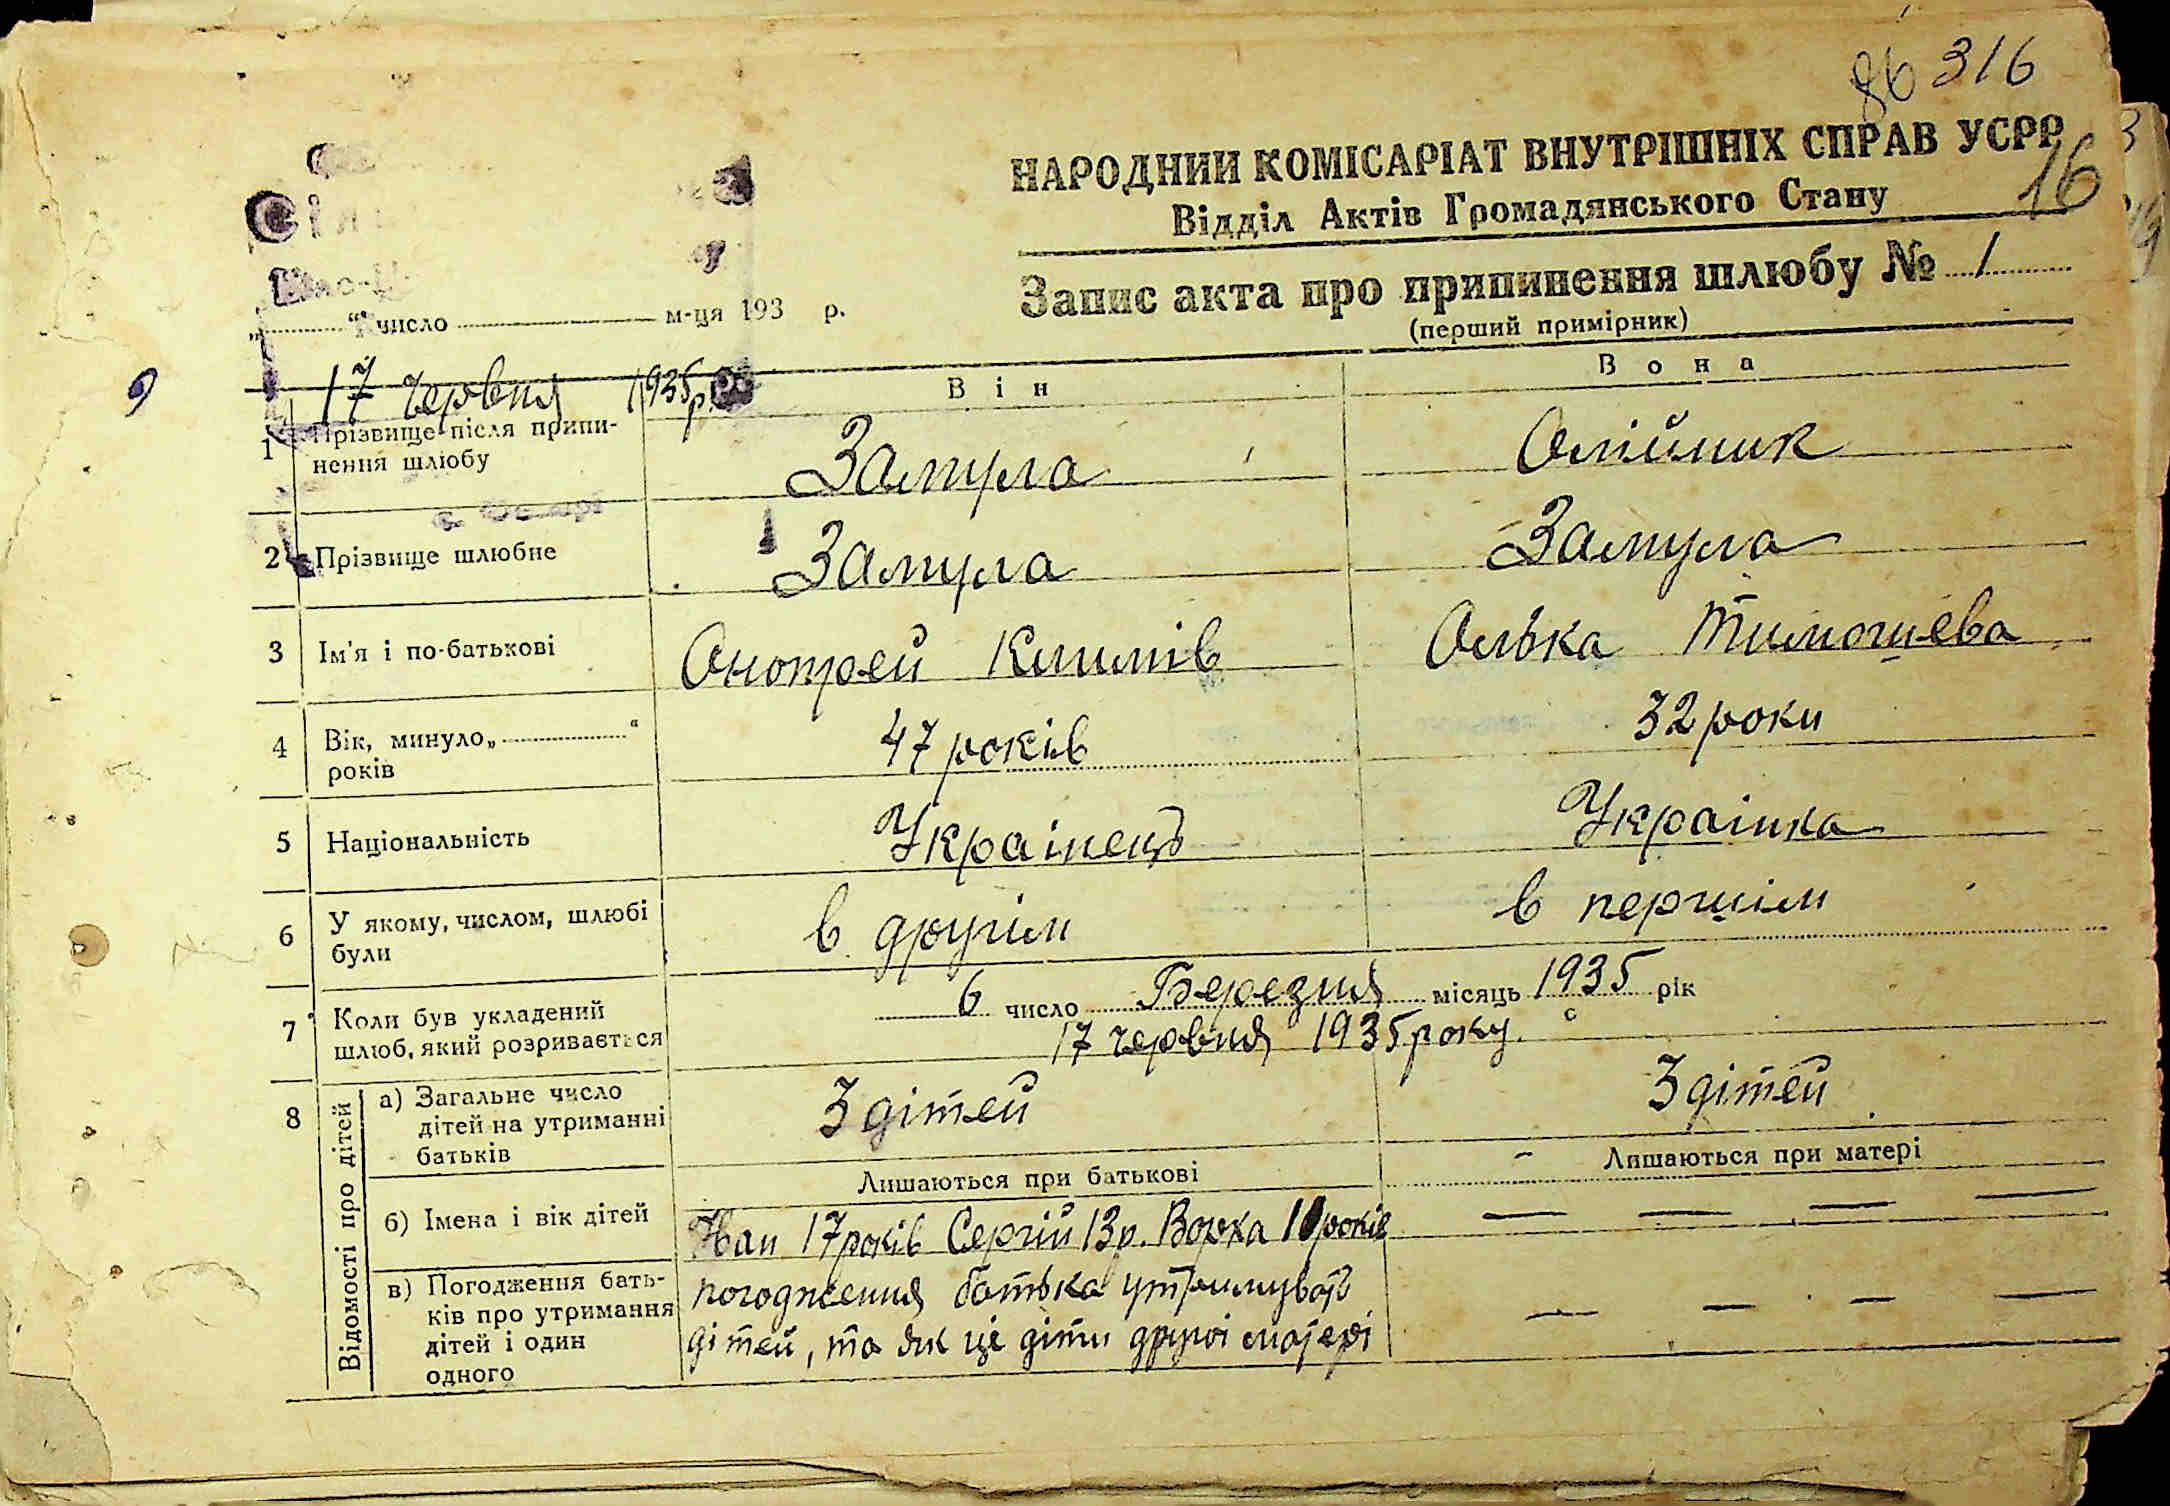 86 316
НАРОДНИЙ КОМІСАРІАТ ВНУТРІШНІХ СПРАВ УСРР
16
Відділ Актів Громадянського Стану
Запис акта про припинення шлюбу № 1
(перший примірник)
„ “ число м-ця 193 р.
17 червня 1935р.
Він Вона
1 Прізвище після припи-
нення шлюбу Замула Олійник
2 Прізвище шлюбне Замула Замула
3 Ім'я і по-батькові Онопрей Климів Олька Тимошева
4 Вік, минуло „ “
років 47 років 32 роки
5 Національність Украінець Украінка
6 У якому, числом, шлюбі
були в другім в першім
7 Коли був укладений
шлюб, який розривається 6 число Березня місяць 1935 рік
17 червня 1935 року.
8 Відомості про дітей
а) Загальне число
дітей на утриманні
батьків 3 дітей 3 дітей
Лишаються при батькові Лишаються при матері
б) Імена і вік дітей Іван 17 років Сергій 13 р. Ворка 10 років — — — —
в) Погодження бать-
ків про утримання
дітей і один
одного
погодження батька утримувать
дітей, та як це діти другоі матері — — — —